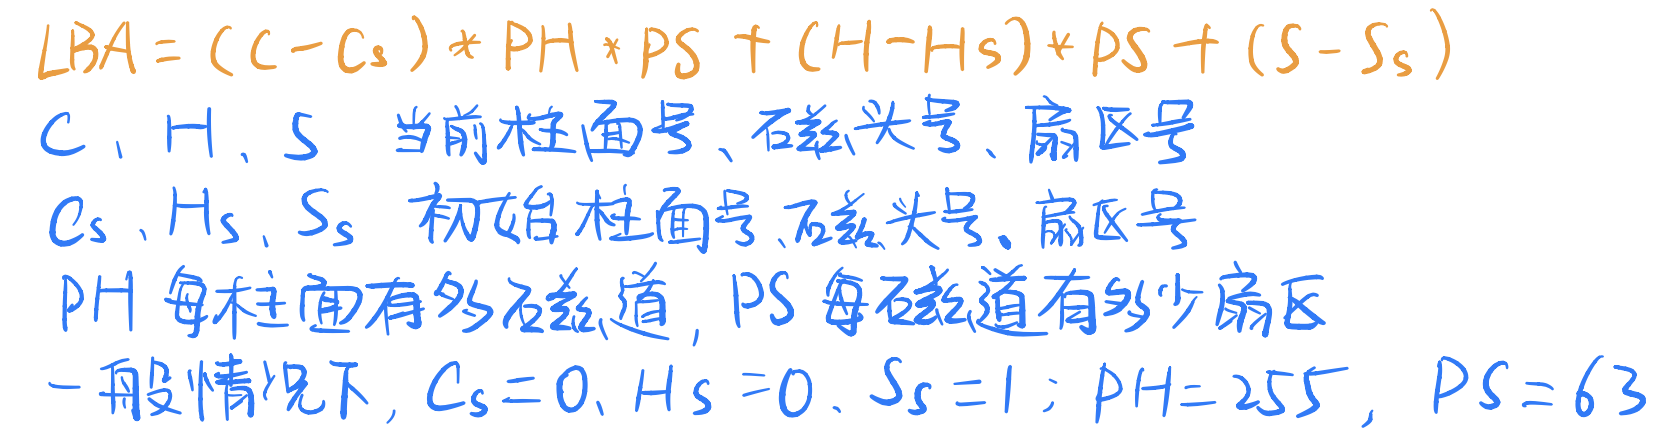 LBA = (C-Cs) * PH * PS + (H-Hs) * PS + (S-Ss)
C、H、S 当前柱面号、磁头号、扇区号
Cs、Hs、Ss 初始柱面号、磁头号、扇区号
PH 每柱面有多磁道, PS 每磁道有多少扇区
一般情况下, Cs=0、Hs=0、Ss=1; PH=255, PS=63